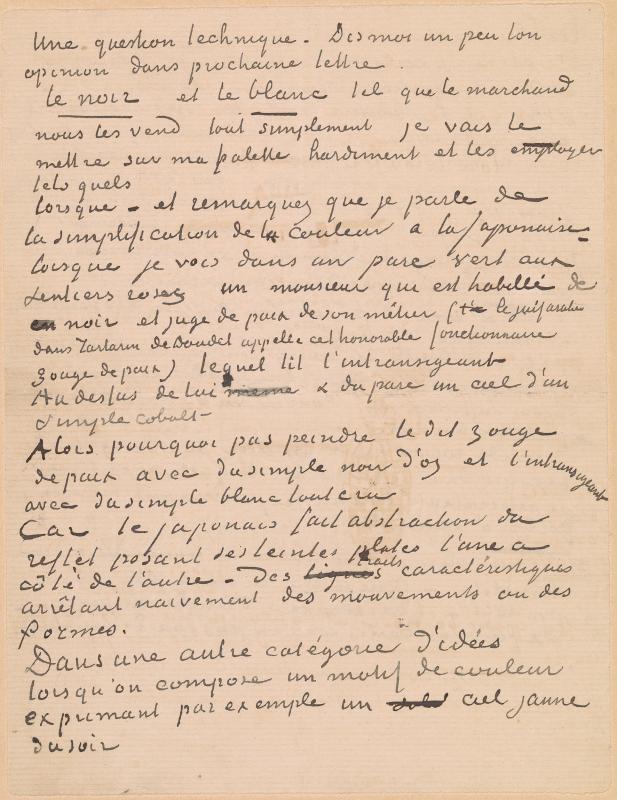 Une question technique. Dis moi un peu ton
opinion dans prochaine lettre.
Le noir et le blanc tel que le marchand
nous les vend tout simplement je vais le
mettre sur ma palette hardiment et les employer
tels quels
lorsque – et remarquez que je parle de
la simplification de la couleur a la Japonaise –
lorsque je vois dans un parc vert aux
sentiers roses un monsieur qui est habillé de
en noir et juge de paix de son métier (le juif arabe
dans Tartarin de Daudet appelle cet honorable fonctionnaire
zouge de paix) lequel lit l'intransigeant
Au dessus de lui meme & du parc un ciel d'un
simple cobalt –
Alors pourquoi pas peindre le dit zouge
de paix avec du simple noir d'os et l'intransigeant
avec du simple blanc tout cru
Car le japonais fait abstraction du
reflet posant ses teintes plates l'une a
côté de l'autre – Des lignes traits caractéristiques
arrêtant naivement des mouvements ou des
formes.
Dans une autre catégorie d'idées
lorsqu'on compose un motif de couleur
exprimant par exemple un ciel jaune
du soir